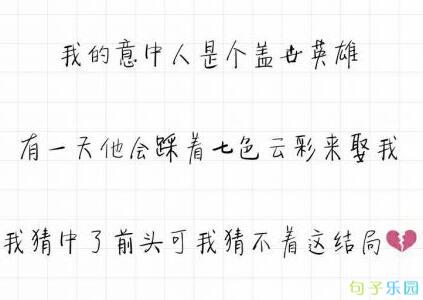 我的意中人是个盖世英雄
有一天他会踩着七色云彩来娶我
我猜中了前头可我猜不着这结局💔
句子乐园